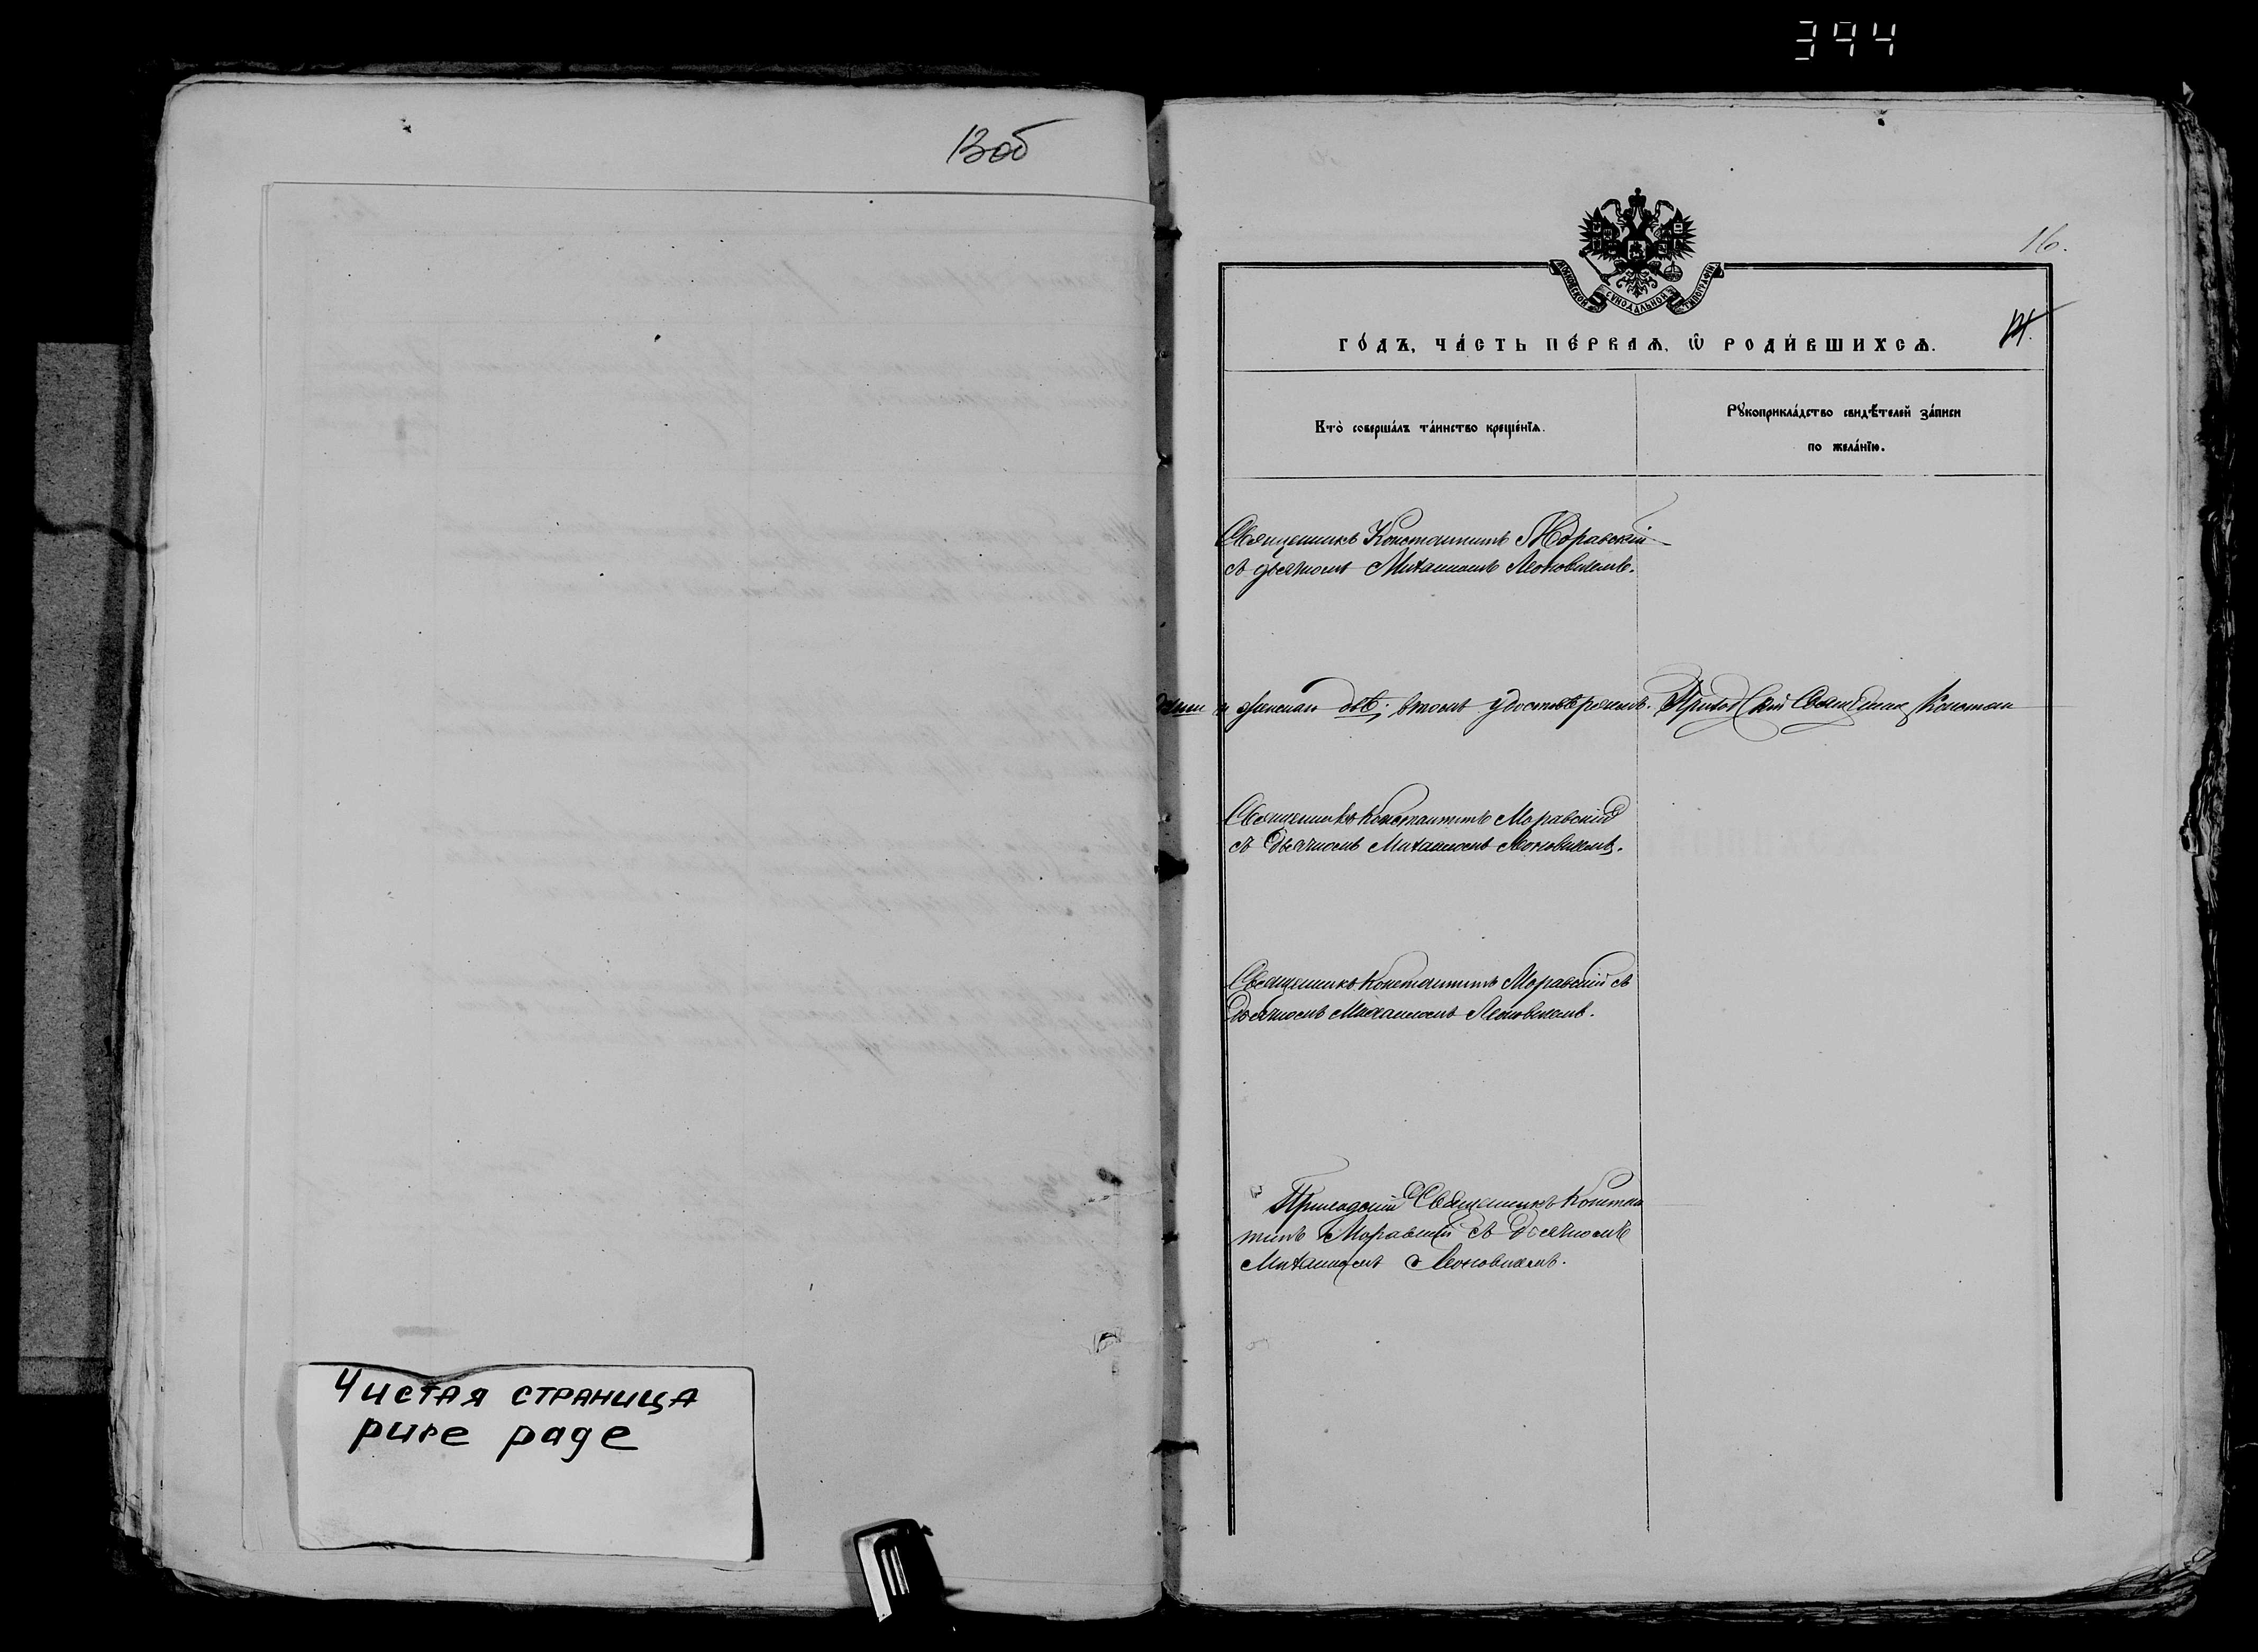 394
13об
Чистая страница
pure page
16.
14.
МОСКОВСКОЙ СѴНОДАЛЬНОЙ ТИПОГРАФІИ
ГО́ДЪ, ЧА́СТЬ ПЕ́РВАѦ, Ѡ҆ РОДИ́ВШИХСѦ.
Кто̀ соверша́лъ та́инство креще́нїѧ.
Рꙋкоприкла́дство свидѣ́телей за́писи
по жела́нїю.
Священникъ Константинъ Моравскій
съ дьячкомъ Михаиломъ Леоновичемъ.
и женска двѣ; въ томъ удостовѣряемъ. Приходскій Священник Констан
Священникъ Константинъ Моравскій
съ Дьячкомъ Михаиломъ Леоновичемъ.
Священникъ Константинъ Моравскій съ
Дьячкомъ Михаиломъ Леоновичемъ.
Приходскій Священникъ Констан
тинъ Моравскій съ Дьячкомъ
Михаиломъ Леоновичемъ.